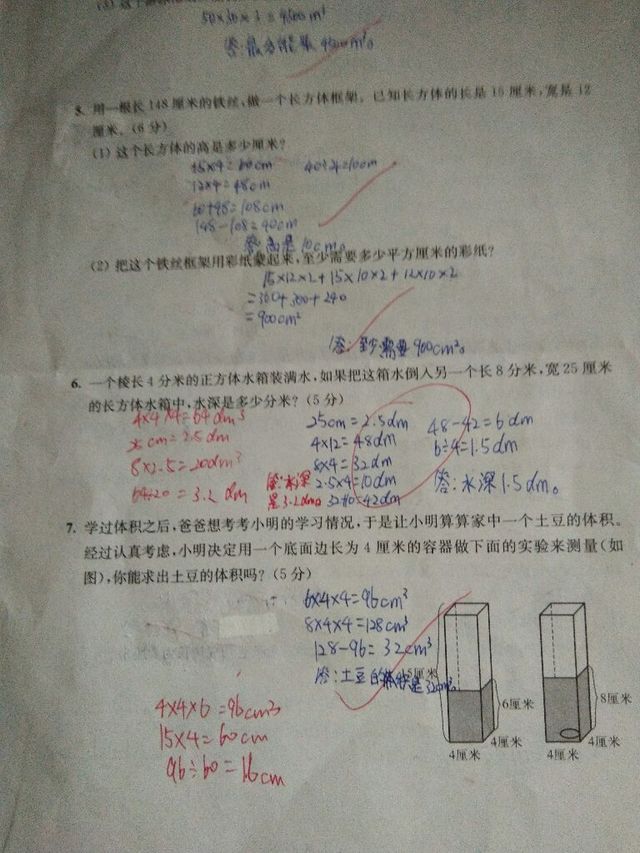 50×30×3=4500m³
5. 用一根长148厘米的铁丝,做一个长方体框架。已知长方体的长是15厘米,宽是12
厘米。(6分)
(1) 这个长方体的高是多少厘米?
15×4=60cm 40÷4=10cm
12×4=48cm
60+48=108cm
148-108=40cm
答:高是10cm。
(2) 把这个铁丝框架用彩纸蒙起来,至少需要多少平方厘米的彩纸?
15×12×2+15×10×2+12×10×2
=360+300+240
=900cm²
答:至少需要900cm²。
6. 一个棱长4分米的正方体水箱装满水,如果把这箱水倒入另一个长8分米,宽25厘米
的长方体水箱中,水深是多少分米?(5分)
4×4×4=64dm³ 25cm=2.5dm 48-42=6dm
25cm=2.5dm 4×12=48dm 6÷4=1.5dm
8×2.5=20dm² 8×4=32dm 答:水深1.5dm。
答:水深 2.5×4=10dm
64÷20=3.2dm 是3.2dm。 32+10=42dm
7. 学过体积之后,爸爸想考考小明的学习情况,于是让小明算算家中一个土豆的体积。
经过认真考虑,小明决定用一个底面边长为4厘米的容器做下面的实验来测量(如
图),你能求出土豆的体积吗?(5分)
6×4×4=96cm³
8×4×4=128cm³
128-96=32cm³
答:土豆的体积是32cm³。
15厘米
6厘米
8厘米
4厘米
4厘米
4厘米
4厘米
4×4×6=96cm³
15×4=60cm
96÷60=16cm